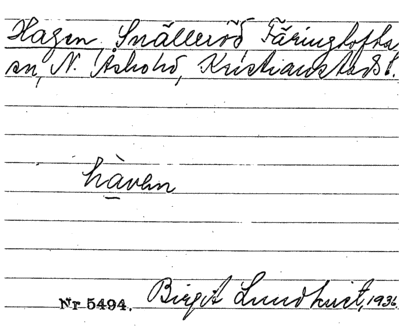 Hagen, Snälleröd, Färingtofta
sn, N. Åsbo hd, Kristianstads l.
hàven
Nr 5494. Birgit Lundkvist, 1936